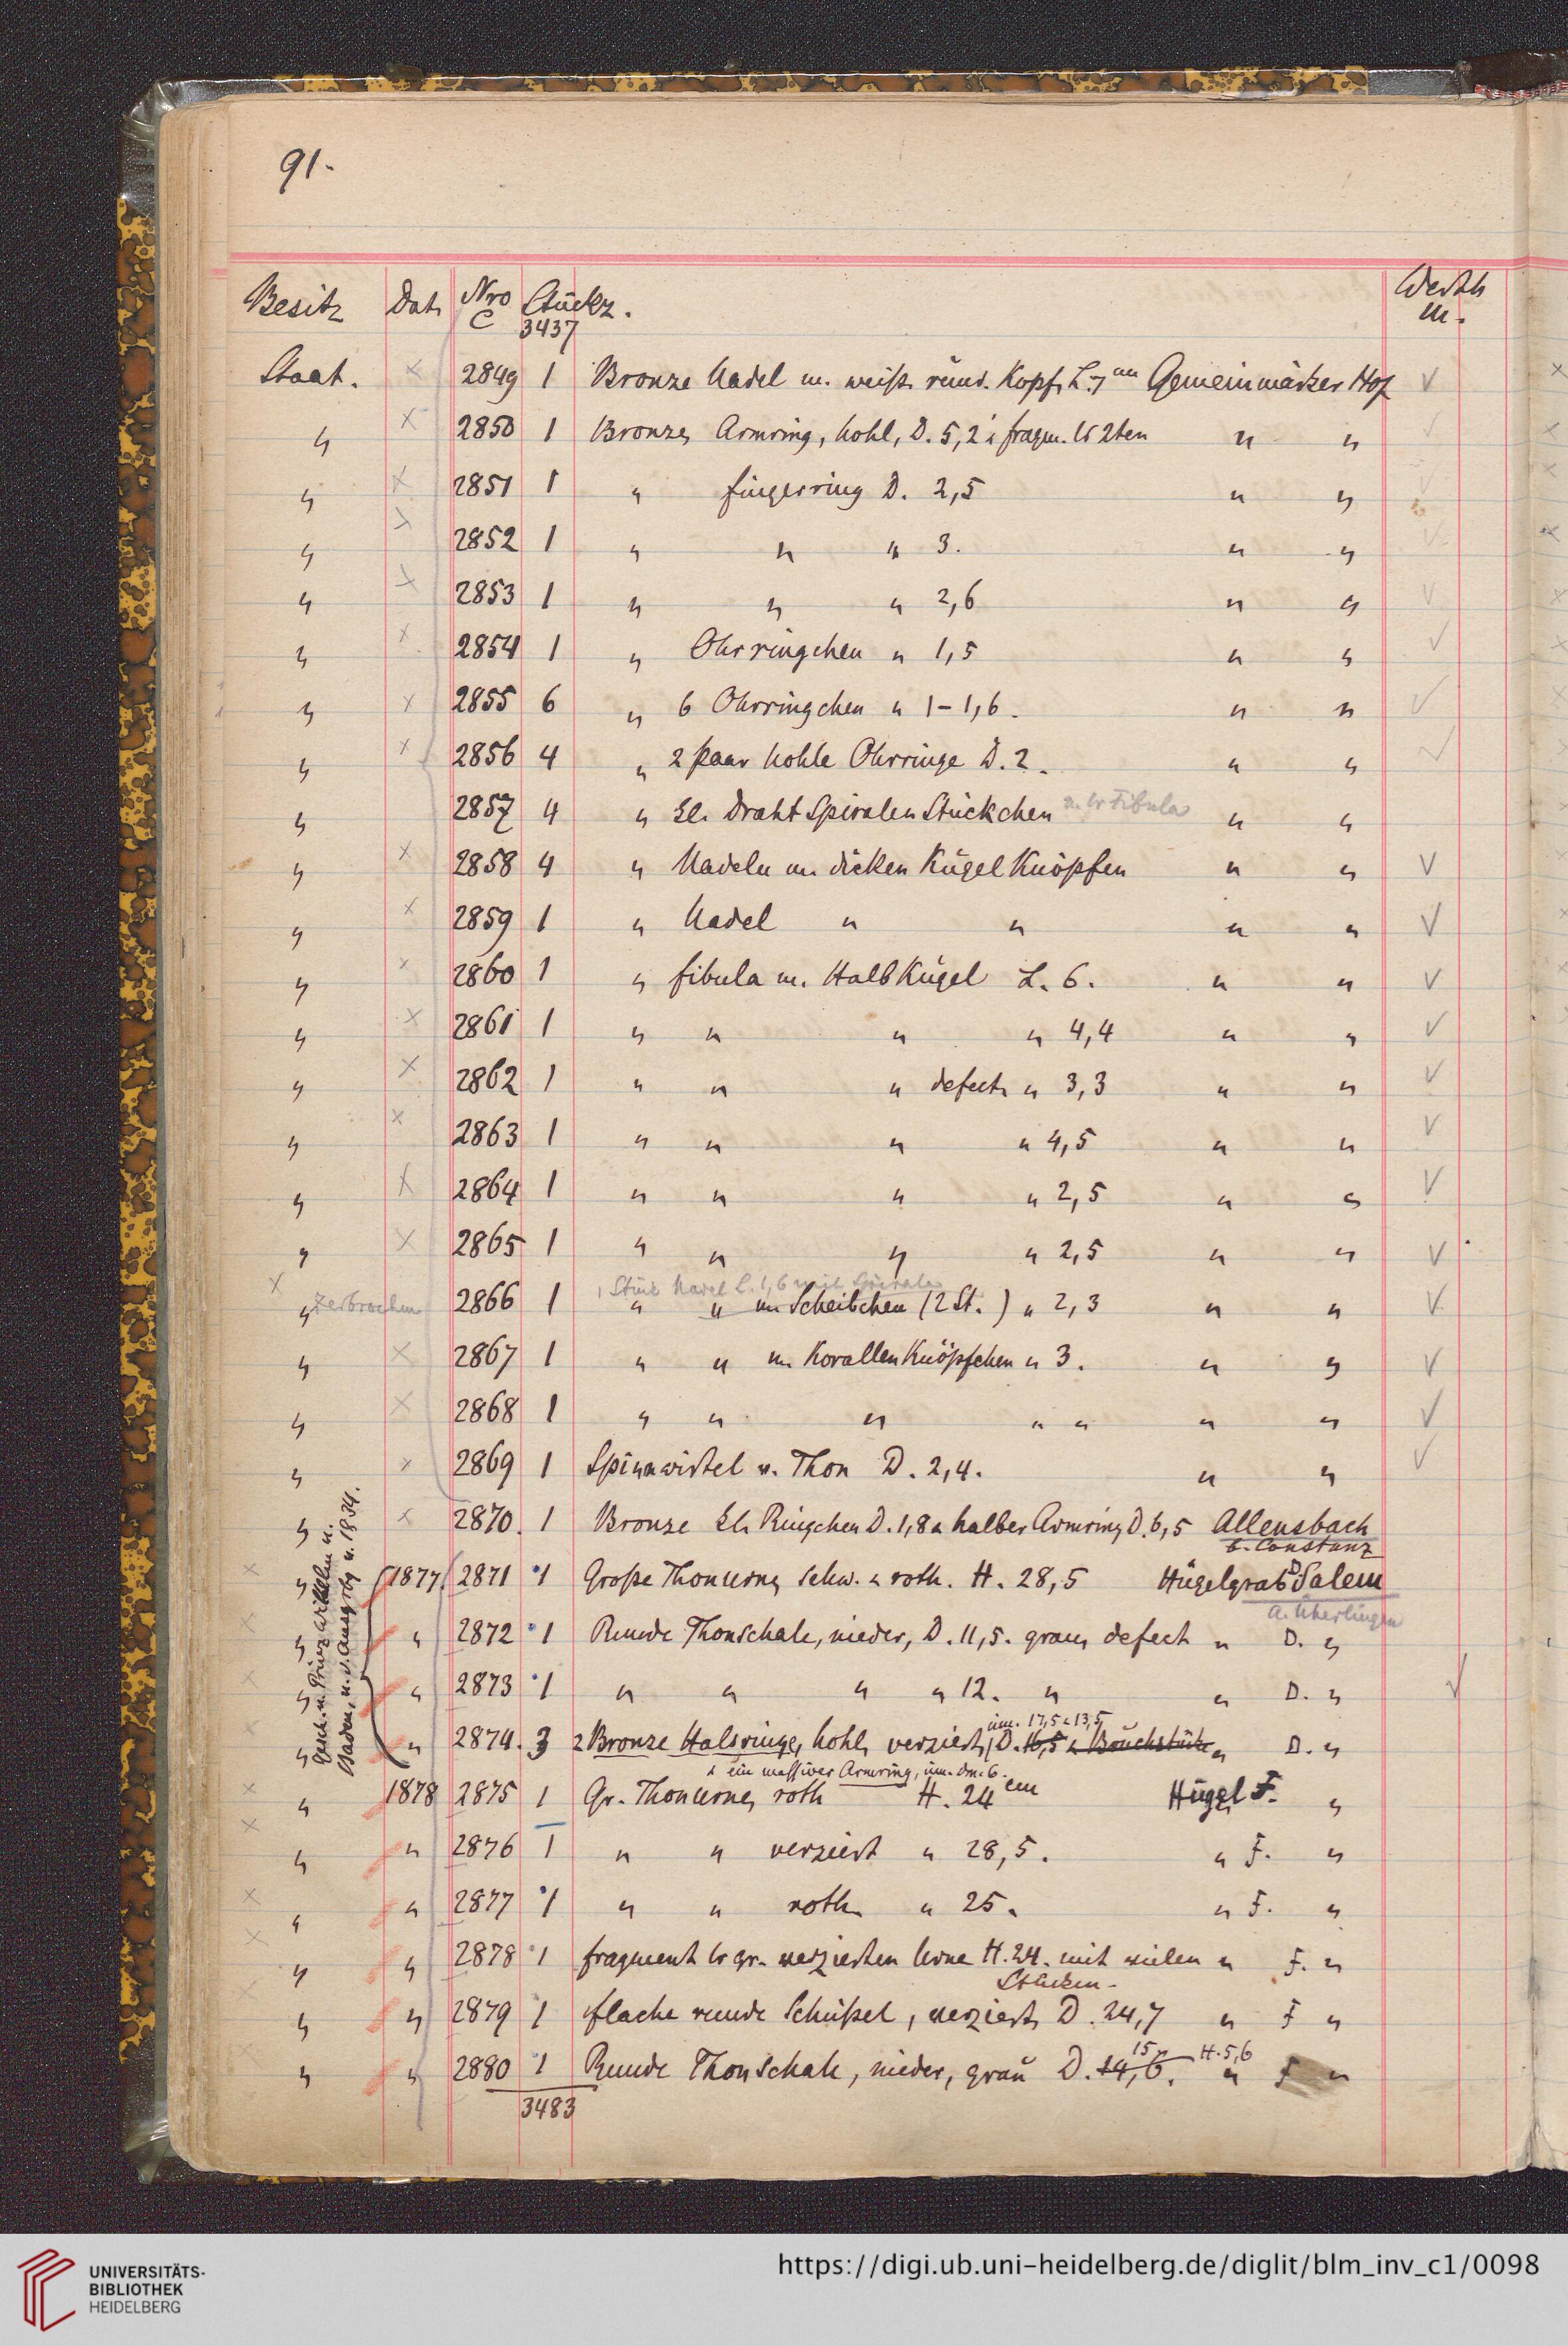 91.
Besitz Dat. Nro C Stückz. Werth M.
3437
Staat. 2849 1 Bronze Nadel m. weiß. rund. Kopf, L. 7 cm Gemeinmärker Hof
" 2850 1 Bronze, Armring, hohl, D. 5,2 & fragm. 2ten " "
" 2851 1 " Fingerring D. 2,5 " "
" 2852 1 " " " 3. " "
" 2853 1 " " " 2,6 " "
" 2854 1 " Ohrringchen " 1,5 " "
" 2855 6 " 6 Ohrringchen " 1-1,6. " "
" 2856 4 " 2 Paar hohle Ohrringe D. 2. " "
" 2857 4 " kl. Draht Spiralen Stückchen Fibula " "
" 2858 4 " Nadeln m. dicken Kugel Knöpfen " "
" 2859 1 " Nadel " " " "
" 2860 1 " Fibula m. Halb Kugel L. 6. " "
" 2861 1 " " " " 4,4 " "
" 2862 1 " " " defect. " 3,3 " "
" 2863 1 " " " " 4,5 " "
" 2864 1 " " " " 2,5 " "
" 2865 1 " " " " 2,5 " "
1 Stück Nadel L. 1,6 mit Spirale
" zerbrochen 2866 1 " " m. Scheibchen (2 St.) " 2,3 " "
" 2867 1 " " m. Korallen Knöpfchen " 3. " "
" 2868 1 " " " " " " "
" 2869 1 Spinnwirtel v. Thon D. 2,4. " "
" 2870. 1 Bronze kl. Ringchen D. 1,8 & halber Armring D. 6,5 Allensbach
b. Constanz
Gesch. v. Prinz Wilhelm v.
Baden, u. s. Ausgrbg v. 1834.
" 1877 2871 1 Große Thonurne, schw. & roth. H. 28,5 Hügelgrab D Salem
A. Überlingen
" " 2872 1 Runde Thonschale, nieder, D. 11,5. grau, defect " D. "
" " 2873 1 " " " " 12. " " D. "
inn. 17,5 & 13,5
" " 2874. 3 2 Bronze Halsringe, hohl, verziert, D. 16,5 & Bruchstücke " D. "
& ein massiver Armring, inn. Dm. 6.
" 1878 2875 1 Gr. Thonurne, roth H. 24 cm Hügel F. "
" " 2876 1 " " verziert " 28,5. " F. "
" " 2877 1 " " roth. " 25. " F. "
" " 2878 1 Fragment gr. verzierten Urne H. 24. mit vielen " F. "
Stücken.
" " 2879 1 flache runde Schüßel, verziert, D. 24,7 " F "
15 H. 5,6
" " 2880 1 Runde Thonschale, nieder, grau D. 14,6. " F "
3483
UNIVERSITÄTS-
BIBLIOTHEK
HEIDELBERG
https://digi.ub.uni-heidelberg.de/diglit/blm_inv_c1/0098